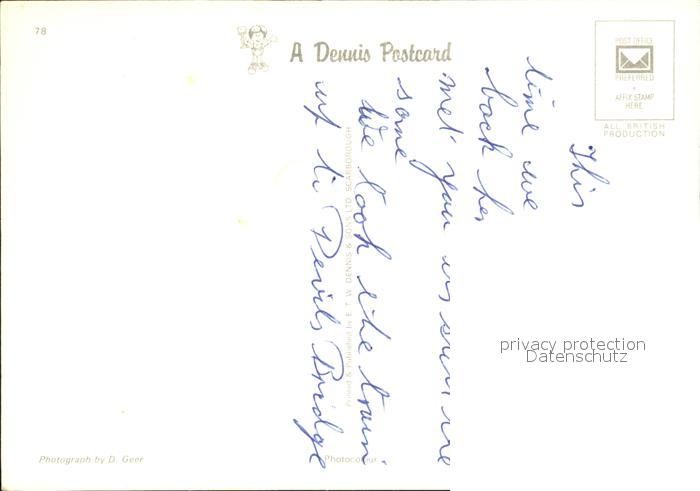 78
A Dennis Postcard
POST OFFICE
PREFERRED
AFFIX STAMP
HERE
ALL BRITISH
PRODUCTION
This
time we
back
met you
some
We took the train
up to Devils Bridge
Printed & Published by E. T. W. DENNIS & SONS LTD. SCARBOROUGH
privacy protection
Datenschutz
Photograph by D. Geer
Photocolour